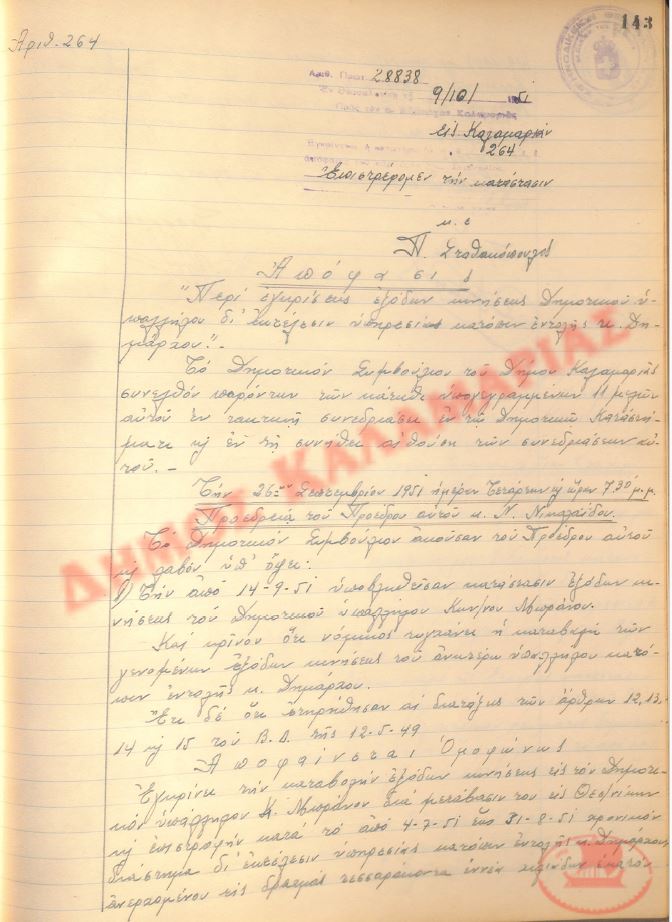 143
Ἀριθ. 264
Αριθ. Πρωτ. 28838
9/10/ 51
εἰς Καλαμαριὰν
264
Ἐπιστρέφομεν τὴν κατάστασιν
Π. Σταθακόπουλος
Ἀπόφασις
"Περὶ ἐγκρίσεως ἐξόδων κινήσεως Δημοτικοῦ ὑ-
παλλήλου δι' ἐκτέλεσιν ὑπηρεσίας κατόπιν ἐντολῆς κ. Δη-
μάρχου".-
Τὸ Δημοτικὸν Συμβούλιον τοῦ Δήμου Καλαμαριᾶς
συνελθὸν παρόντων τῶν κάτωθι ὑπογεγραμμένων 11 μελῶν
αὐτοῦ ἐν τακτικῇ συνεδριάσει ἐν τῷ Δημοτικῷ Καταστή-
ματι κ ἐν τῇ συνήθει αἰθούσῃ τῶν συνεδριάσεων αὐ-
τοῦ.-
Τὴν 26ην Σεπτεμβρίου 1951 ἡμέραν Τετάρτην κ ὥραν 7.30 μ.μ.
Προεδρείᾳ τοῦ Προέδρου αὐτοῦ κ. Ν. Νικολαΐδου.
Τὸ Δημοτικὸν Συμβούλιον ἀκοῦσαν τοῦ Προέδρου αὐτοῦ
κ λαβὸν ὑπ' ὄψει:
1) Τὴν ἀπὸ 14-9-51 ὑποβληθεῖσαν κατάστασιν ἐξόδων κι-
νήσεως τοῦ Δημοτικοῦ ὑπαλλήλου Κων/νου Μπράνου.
Καὶ κρῖνον ὅτι νόμιμος τυγχάνει ἡ καταβολὴ τῶν
γενομένων ἐξόδων κινήσεως τοῦ ἀνωτέρω ὑπαλλήλου κατό-
πιν ἐντολῆς κ. Δημάρχου.
Ἔτι δὲ ὅτι ἐτηρήθησαν αἱ διατάξεις τῶν ἄρθρων 12, 13,
14 κ 15 τοῦ Β.Δ. τῆς 12-5-49
Ἀποφαίνεται Ὁμοφώνως
Ἐγκρίνει τὴν καταβολὴν ἐξόδων κινήσεως εἰς τὸν Δημοτι-
κὸν ὑπάλληλον Κ. Μπράνον διὰ μετάβασίν του εἰς Θεσ/νίκην
κ ἐπιστροφὴν κατὰ τὸ ἀπὸ 4-7-51 ἕως 31-8-51 χρονικὸν
διάστημα δι' ἐκτέλεσιν ὑπηρεσίας κατόπιν ἐντολῆς κ. Δημάρχου,
ἀνερχομένου τῆς δραχμὰς τεσσαράκοντα ἐννέα χιλιάδων ἑκατὸν
ΔΗΜΟΣ ΚΑΛΑΜΑΡΙΑΣ